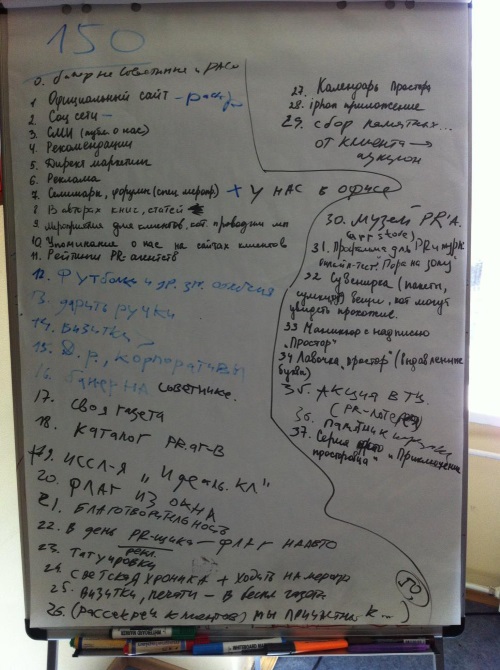 150
0. банер на Советнике и РАСО
1 Официальный сайт -
2 Соц сети -
3. СМИ (публ о нас)
4. Рекомендации
5. Директ маркетинг
6 Реклама
7. Семинары, форумы (спец меропр) + у нас в офисе
8 В авторах книг, статей
9. мероприятия для клиентов, кот. проводим мы
10. Упоминание о нас на сайтах клиентов
11. Рейтинги PR-агентств
12. Футболки и др. эл. отличия
13. дарить ручки
14. Визитки
15. Д.р., корпоративы
16. банер на советнике.
17. Своя газета
18. каталог PR.аг-в
19. иссл-я "Идеальн. кл"
20. Флаг из окна
21. Благотворительность
22. в день PR-щика - флаг на авто
рекл.
23. Татуировки
24. Светская хроника + ходить на меропр
25. Визитки, - в
26. (рассекреч клиентов) мы причастны к...)
27. Календарь Простора
28. iphon приложение
29. сбор памятных...
от клиента →
аукцион
30. Музей PR'а.
(art store)
31. Программа для PR
онлайн-тест.
32 Сувенирка (пакеты,
вещи, кот могут
увидеть прохожие.
33 Маникюр с надписью
"Простор"
34 Лавочка "простор" (выдавленные
буквы)
35. Акция в ТЦ.
(PR-лотерея)
36. Памятник
37. Серия "Приключения
просторца"
50